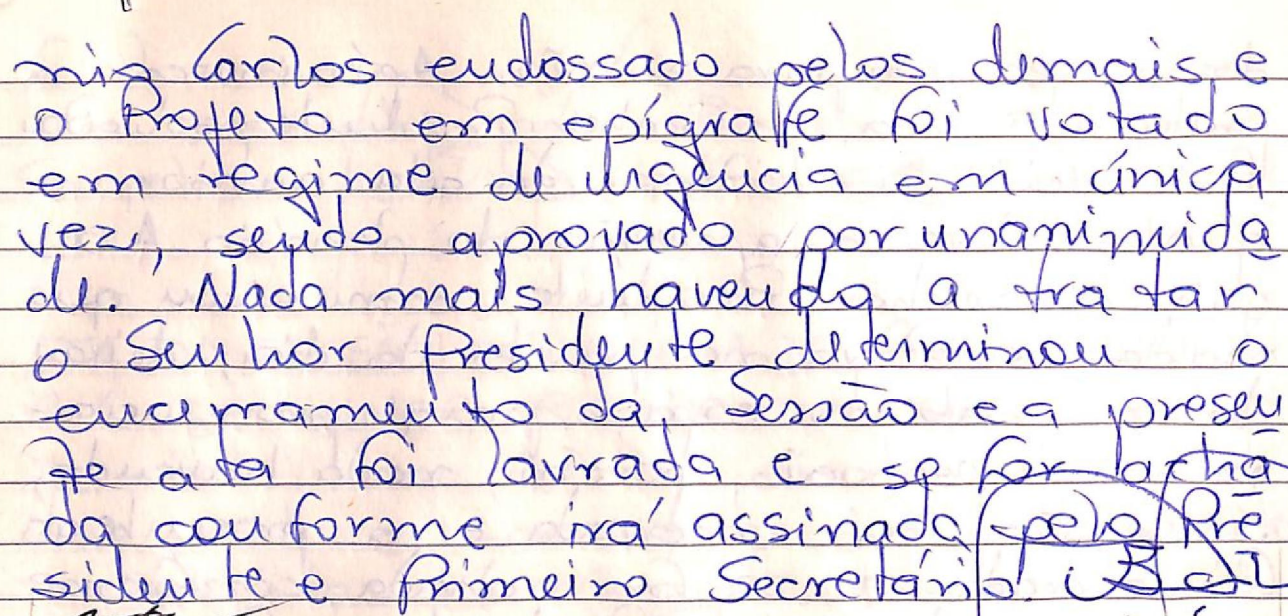 nio Carlos endossado pelos demais, e
o Projeto em epígrafe foi votado
em regime de urgência em única
vez, sendo aprovado por unanimida
de. Nada mais havendo a tratar
o Senhor Presidente determinou o
encerramento da Sessão e a presen
te ata foi lavrada e se for acha
da conforme irá assinada pelo Pre
sidente e Primeiro Secretário.